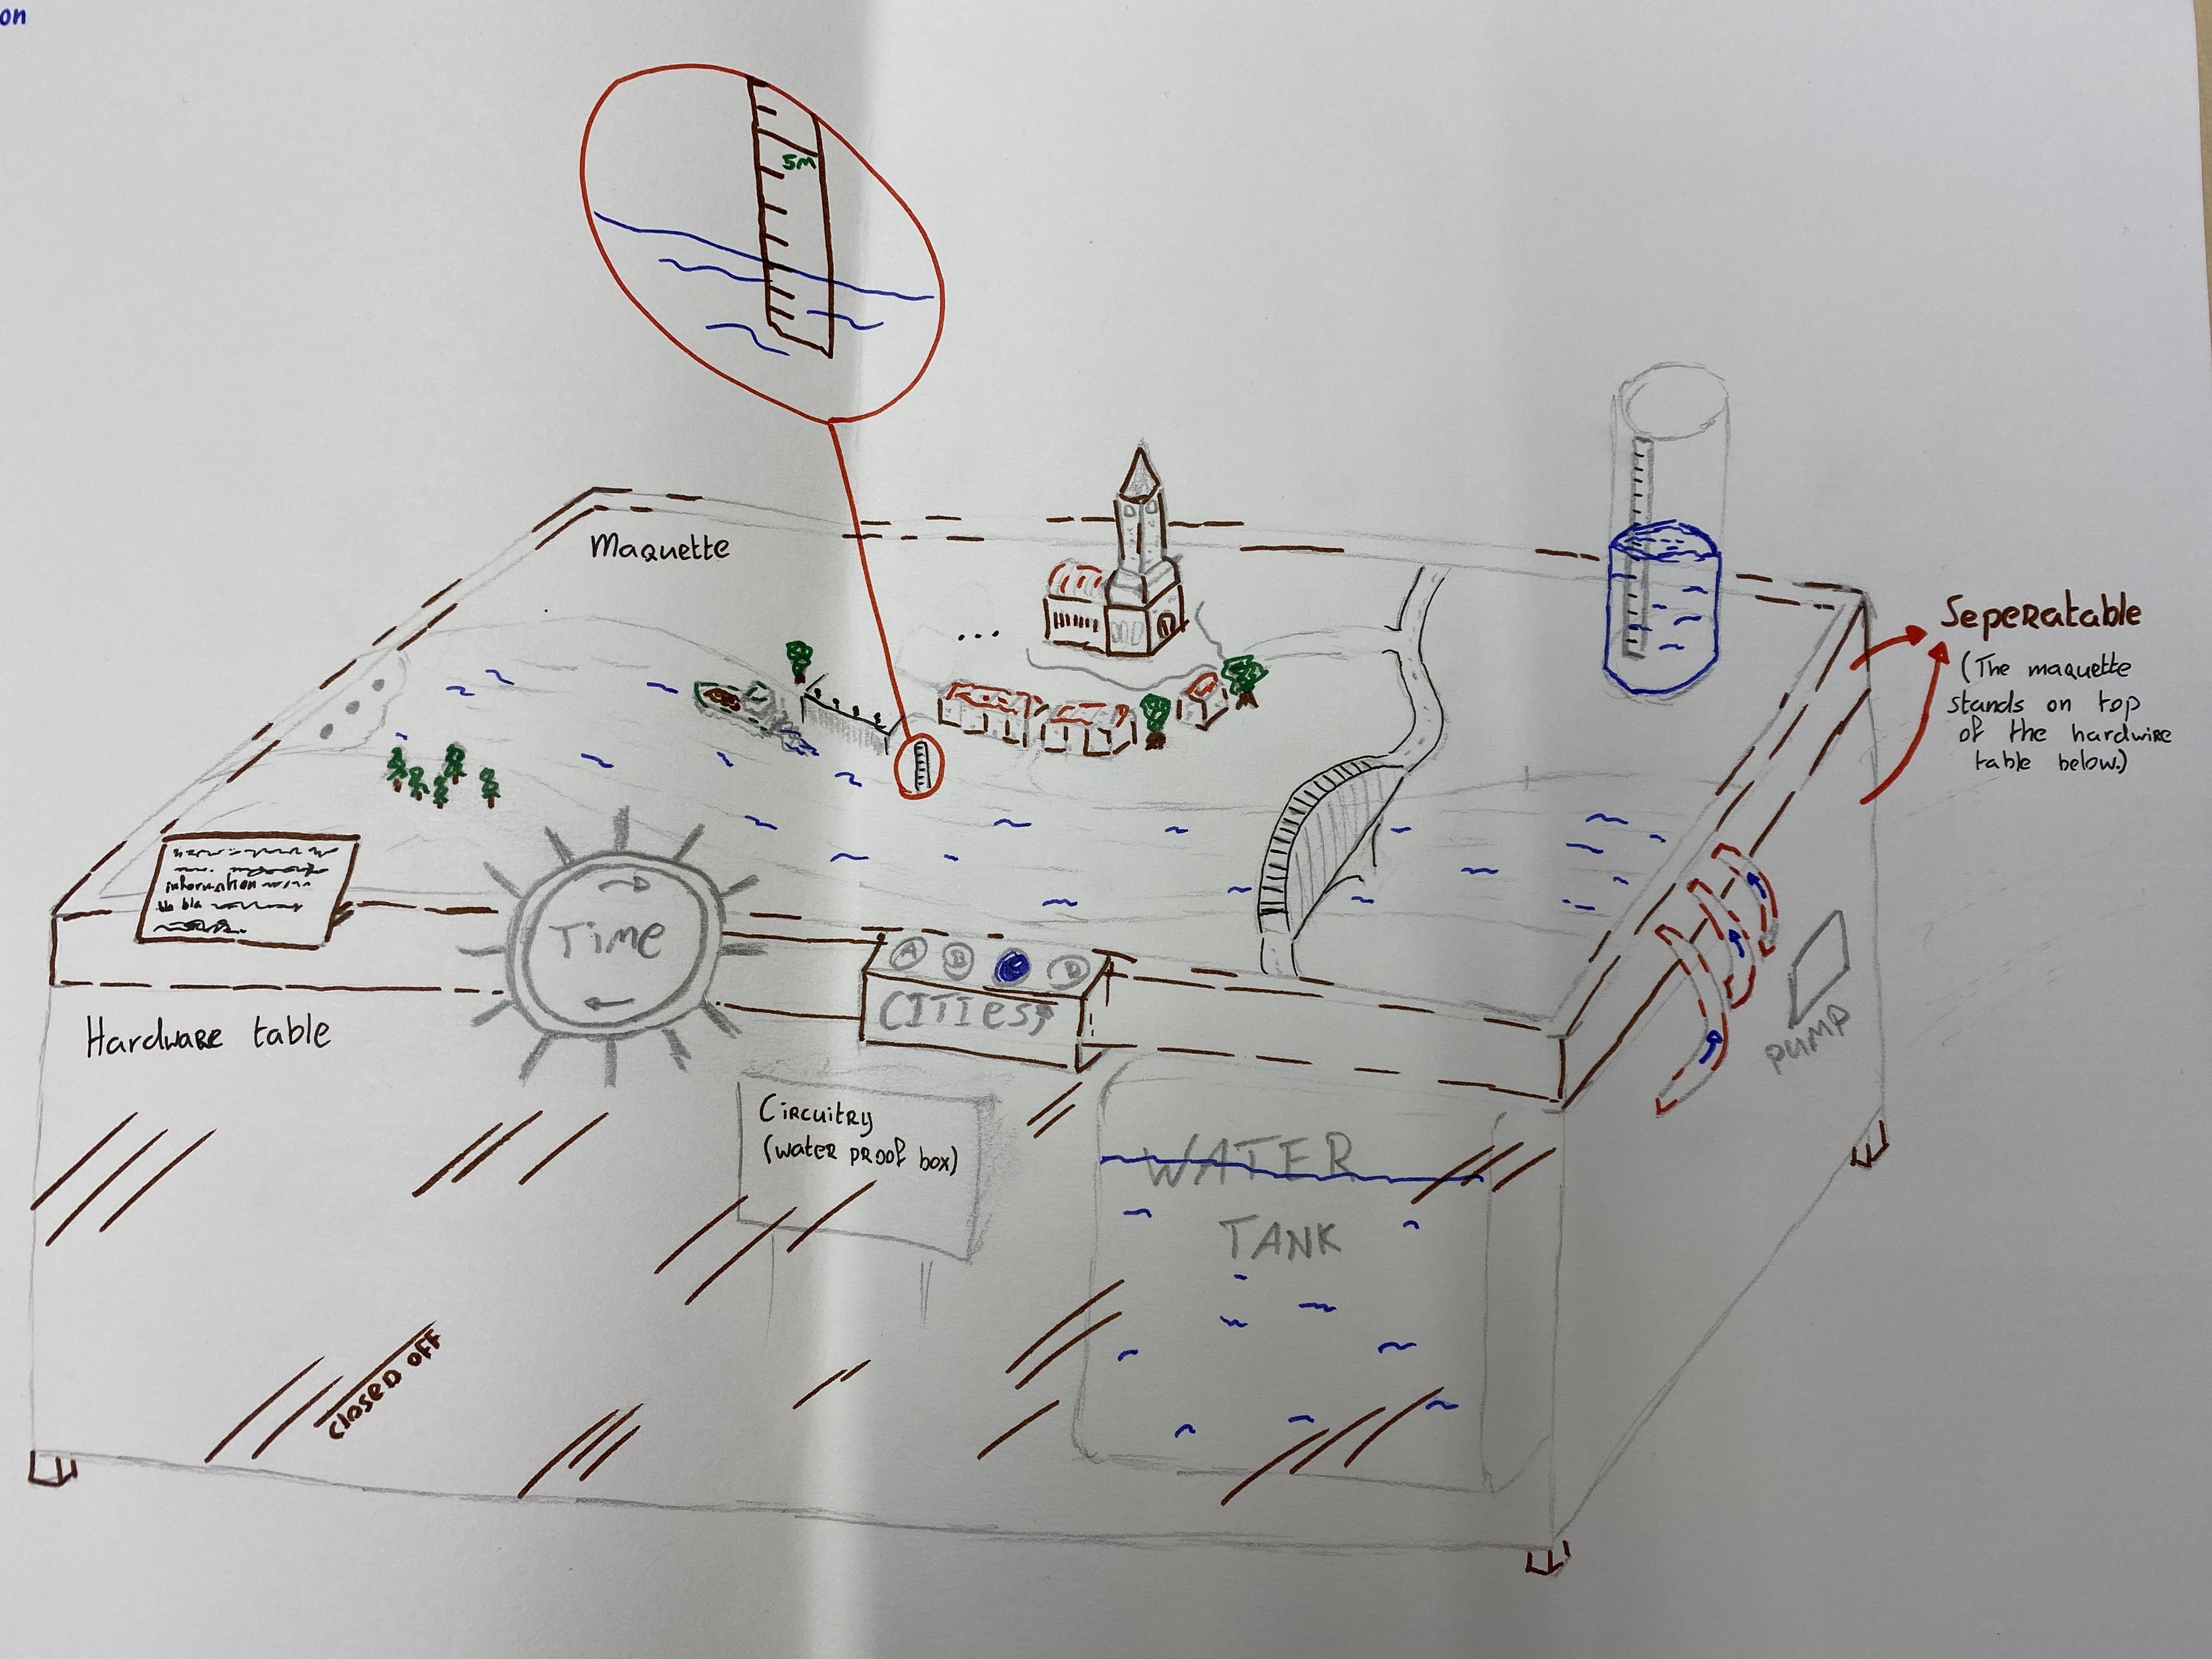 on
5M
Maquette
Seperatable
(The maquette
stands on top
of the hardwire
table below.)
information
bla
Time
A B D
CITIES
PUMP
Hardware table
Circuitry
(water proof box)
WATER
TANK
closed off